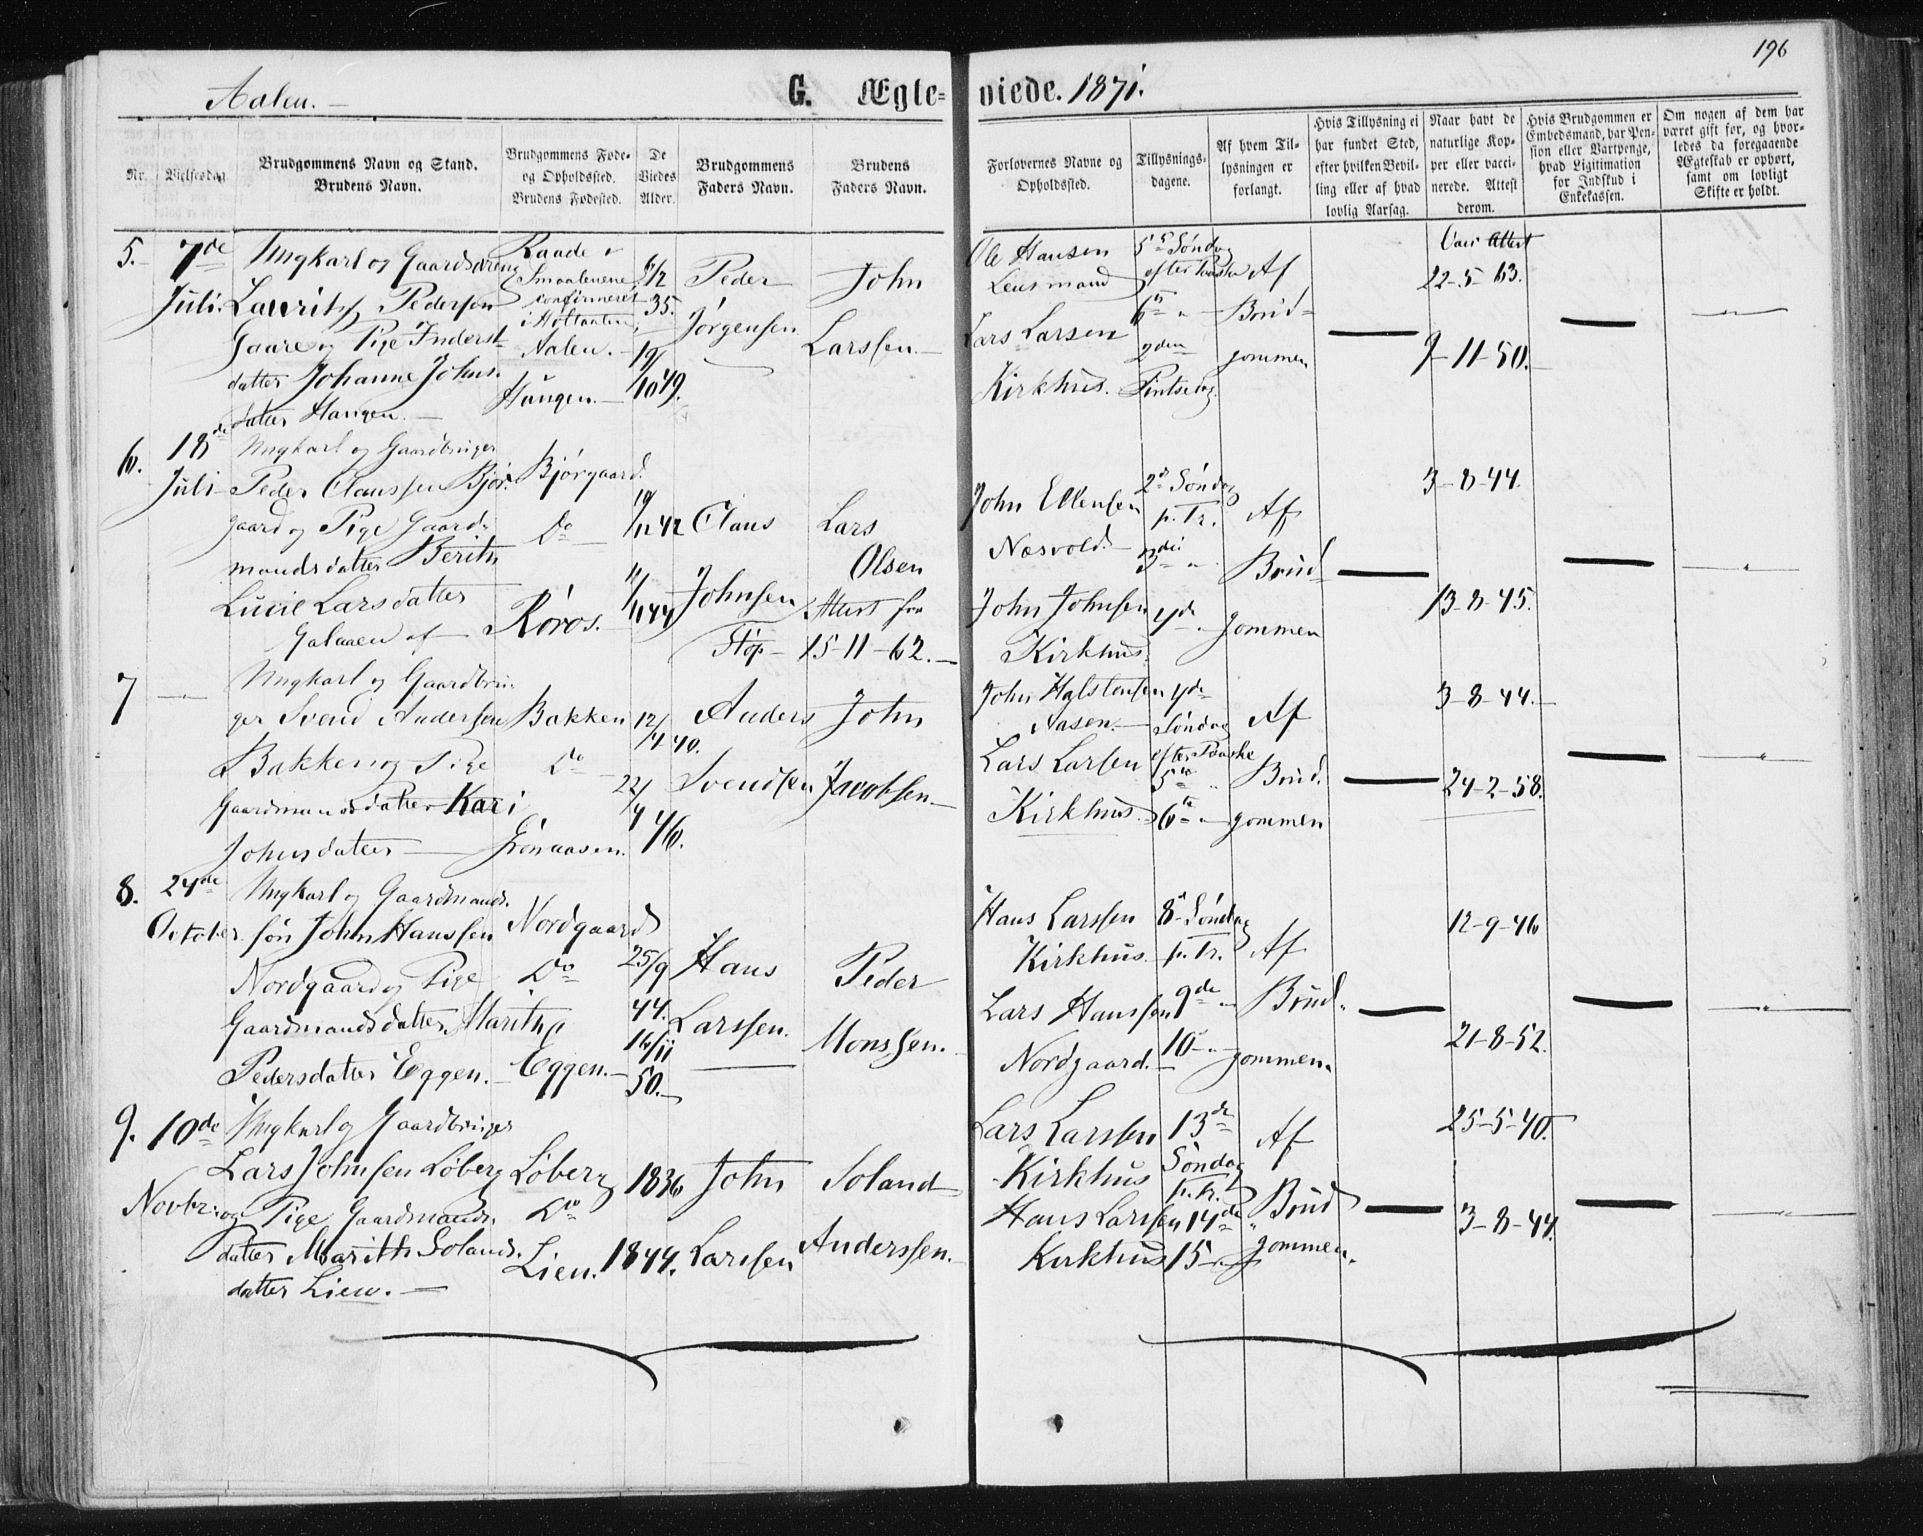 196
Aalen. —
G. Ægte=
viede. 1871.
Nr.
Vielsesdag
Brudgommens Navn og Stand.
Brudens Navn.
Brudgommens Føde-
og Opholdssted.
Brudens Fødested.
De
Viedes
Alder.
Brudgommens
Faders Navn.
Brudens
Faders Navn.
Forlovernes Navne og
Opholdssted.
Tillysnings-
dagene.
Af hvem Til-
lysningen er
forlangt.
Hvis Tillysning ei
har fundet Sted,
efter hvilken Bevil-
ling eller af hvad
lovlig Aarsag.
Naar havt de
naturlige Kop-
per eller vacci-
nerede. Attest
derom.
Hvis Brudgommen er
Embedsmand, har Pen-
sion eller Vartpenge,
hvad Ligitimation
for Indskud i
Enkekassen.
Om nogen af dem har
været gift før, og hvor-
ledes da foregaaende
Ægteskab er ophørt,
samt om lovligt
Skifte er holdt.
5.
7de
Juli.
Ungkarl og Gaardsdreng
Lauritz Pedersen
Gaare og Pige Inderst-
datter Johanne Johns-
datter Haugen. —
Raade
Smaalenene
confirmeret
i Holtaalen
Aalen. —
Haugen. —
35.
19/
/10 49.
Peder
Jørgensen
John
Larssen. —
Ole Hansen
Lensmand
Lars Larsen
Kirkhus.
5te Søndag
efter Paaske
6te "
2den
Pintsedag.
Af
Brud-
gommen
Attest
22-5-63.
9-11-50.
6.
18de
Juli
Ungkarl og Gaardbruger
Peder Claussen Bjør-
gaard og Pige Gaard-
mandsdatter Berith
Lucie Larsdatter
Galaaen af
Bjørgaard.
Do
Røros.
19/
/11 42
11/
/11 44
Claus
Johnsen
Lars
Olsen
Attest fra
15-11-62. —
John Ellensen
Næsvold. —
John Johnsen
Kirkhus.
2d Søndag
p. Tr.
3die "
4de "
Af
Brud-
gommen
3-8-44.
13-8-45.
7
Ungkarl og Gaardbru-
ger Svend Andersen
Bakken og Pige
Gaardmandsdatter Kari
Johnsdatter —
Bakken
Do
Grønaasen.
12/
/4 40.
22/
/4
46.
Anders
Svendsen
John
Jacobsen. —
John Halstensen
Aasen. —
Lars Larsen
Kirkhus.
4de
Søndag
efter Paaske
5te "
6te "
Af
Brud-
gommen
3-8-44. —
24-2-58.
8.
24de
October
Ungkarl og Gaardmands-
søn John Hanssen
Nordgaard og Pige
Gaardmandsdatter Marith
Pedersdatter Eggen. —
Nordgaard
Do
Eggen. —
25/9
44.
16/11
50. —
Hans
Larssen.
Peder
Monssen.
Hans Larssen
Kirkhus.
Lars Hanssen
Nordgaard. —
8de Søndag
p. Tr.
9de "
10 - "
Af
Brud-
gommen.
12-9-46
21-8-52.
9.
10de
Novbr.
Ungkarl og Gaardbruger
Lars Johnsen Løberg
og Pige Gaardmands-
datter Marith Solands-
datter Lien. —
Løberg
Do
Lien.
1836
1844.
John
Larssen
Soland
Anderssen.
Lars Larssen
Kirkhus
Hans Larssen
Kirkhus
13de
Søndag
p. Tr.
14de "
15 - "
Af
Brud
gommen.
25-5-40.
3-8-44.